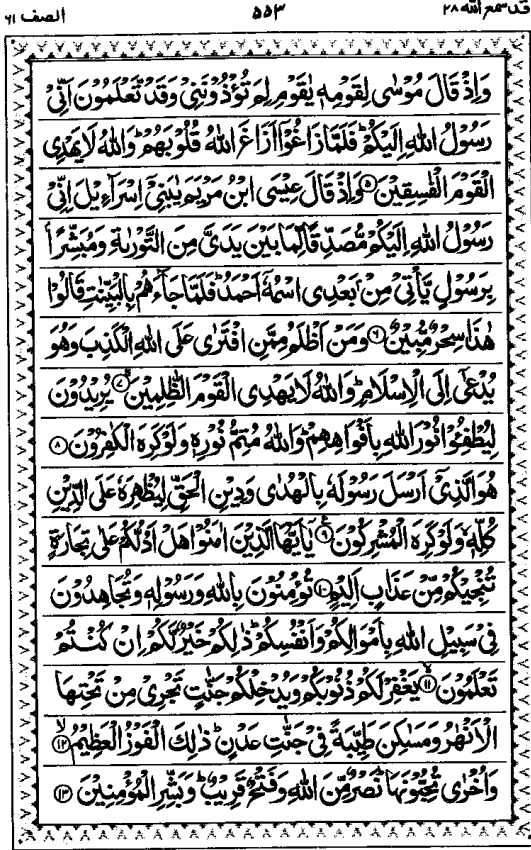 قد سمع الله ۲۸ ۵۵۳ الصف ۶۱
وَاِذْ قَالَ مُوْسٰى لِقَوْمِهٖ يٰقَوْمِ لِمَ تُؤْذُوْنَنِيْ وَقَدْ تَّعْلَمُوْنَ اَنِّيْ
رَسُوْلُ اللهِ اِلَيْكُمْ ؕ فَلَمَّا زَاغُوْۤا اَزَاغَ اللهُ قُلُوْبَهُمْ ؕ وَاللهُ لَا يَهْدِي
الْقَوْمَ الْفٰسِقِيْنَ ۵ وَاِذْ قَالَ عِيْسَى ابْنُ مَرْيَمَ يٰبَنِيْۤ اِسْرَآءِيْلَ اِنِّيْ
رَسُوْلُ اللهِ اِلَيْكُمْ مُّصَدِّقًا لِّمَا بَيْنَ يَدَيَّ مِنَ التَّوْرٰىةِ وَمُبَشِّرًۢا
بِرَسُوْلٍ يَّاْتِيْ مِنْۢ بَعْدِي اسْمُهٗۤ اَحْمَدُ ؕ فَلَمَّا جَآءَهُمْ بِالْبَيِّنٰتِ قَالُوْا
هٰذَا سِحْرٌ مُّبِيْنٌ ۶ وَمَنْ اَظْلَمُ مِمَّنِ افْتَرٰى عَلَى اللهِ الْكَذِبَ وَهُوَ
يُدْعٰۤى اِلَى الْاِسْلَامِ ؕ وَاللهُ لَا يَهْدِي الْقَوْمَ الظّٰلِمِيْنَ ۷ يُرِيْدُوْنَ
لِيُطْفِـُٔوْا نُوْرَ اللهِ بِاَفْوَاهِهِمْ ؕ وَاللهُ مُتِمُّ نُوْرِهٖ وَلَوْ كَرِهَ الْكٰفِرُوْنَ ۸
هُوَ الَّذِيْۤ اَرْسَلَ رَسُوْلَهٗ بِالْهُدٰى وَدِيْنِ الْحَقِّ لِيُظْهِرَهٗ عَلَى الدِّيْنِ
كُلِّهٖ وَلَوْ كَرِهَ الْمُشْرِكُوْنَ ۹ يٰۤاَيُّهَا الَّذِيْنَ اٰمَنُوْا هَلْ اَدُلُّكُمْ عَلٰى تِجَارَةٍ
تُنْجِيْكُمْ مِّنْ عَذَابٍ اَلِيْمٍ ۱۰ تُؤْمِنُوْنَ بِاللهِ وَرَسُوْلِهٖ وَتُجَاهِدُوْنَ
فِيْ سَبِيْلِ اللهِ بِاَمْوَالِكُمْ وَاَنْفُسِكُمْ ؕ ذٰلِكُمْ خَيْرٌ لَّكُمْ اِنْ كُنْتُمْ
تَعْلَمُوْنَ ۱۱ يَغْفِرْ لَكُمْ ذُنُوْبَكُمْ وَيُدْخِلْكُمْ جَنّٰتٍ تَجْرِيْ مِنْ تَحْتِهَا
الْاَنْهٰرُ وَمَسٰكِنَ طَيِّبَةً فِيْ جَنّٰتِ عَدْنٍ ؕ ذٰلِكَ الْفَوْزُ الْعَظِيْمُ ۱۲
وَاُخْرٰى تُحِبُّوْنَهَا ؕ نَصْرٌ مِّنَ اللهِ وَفَتْحٌ قَرِيْبٌ ؕ وَبَشِّرِ الْمُؤْمِنِيْنَ ۱۳